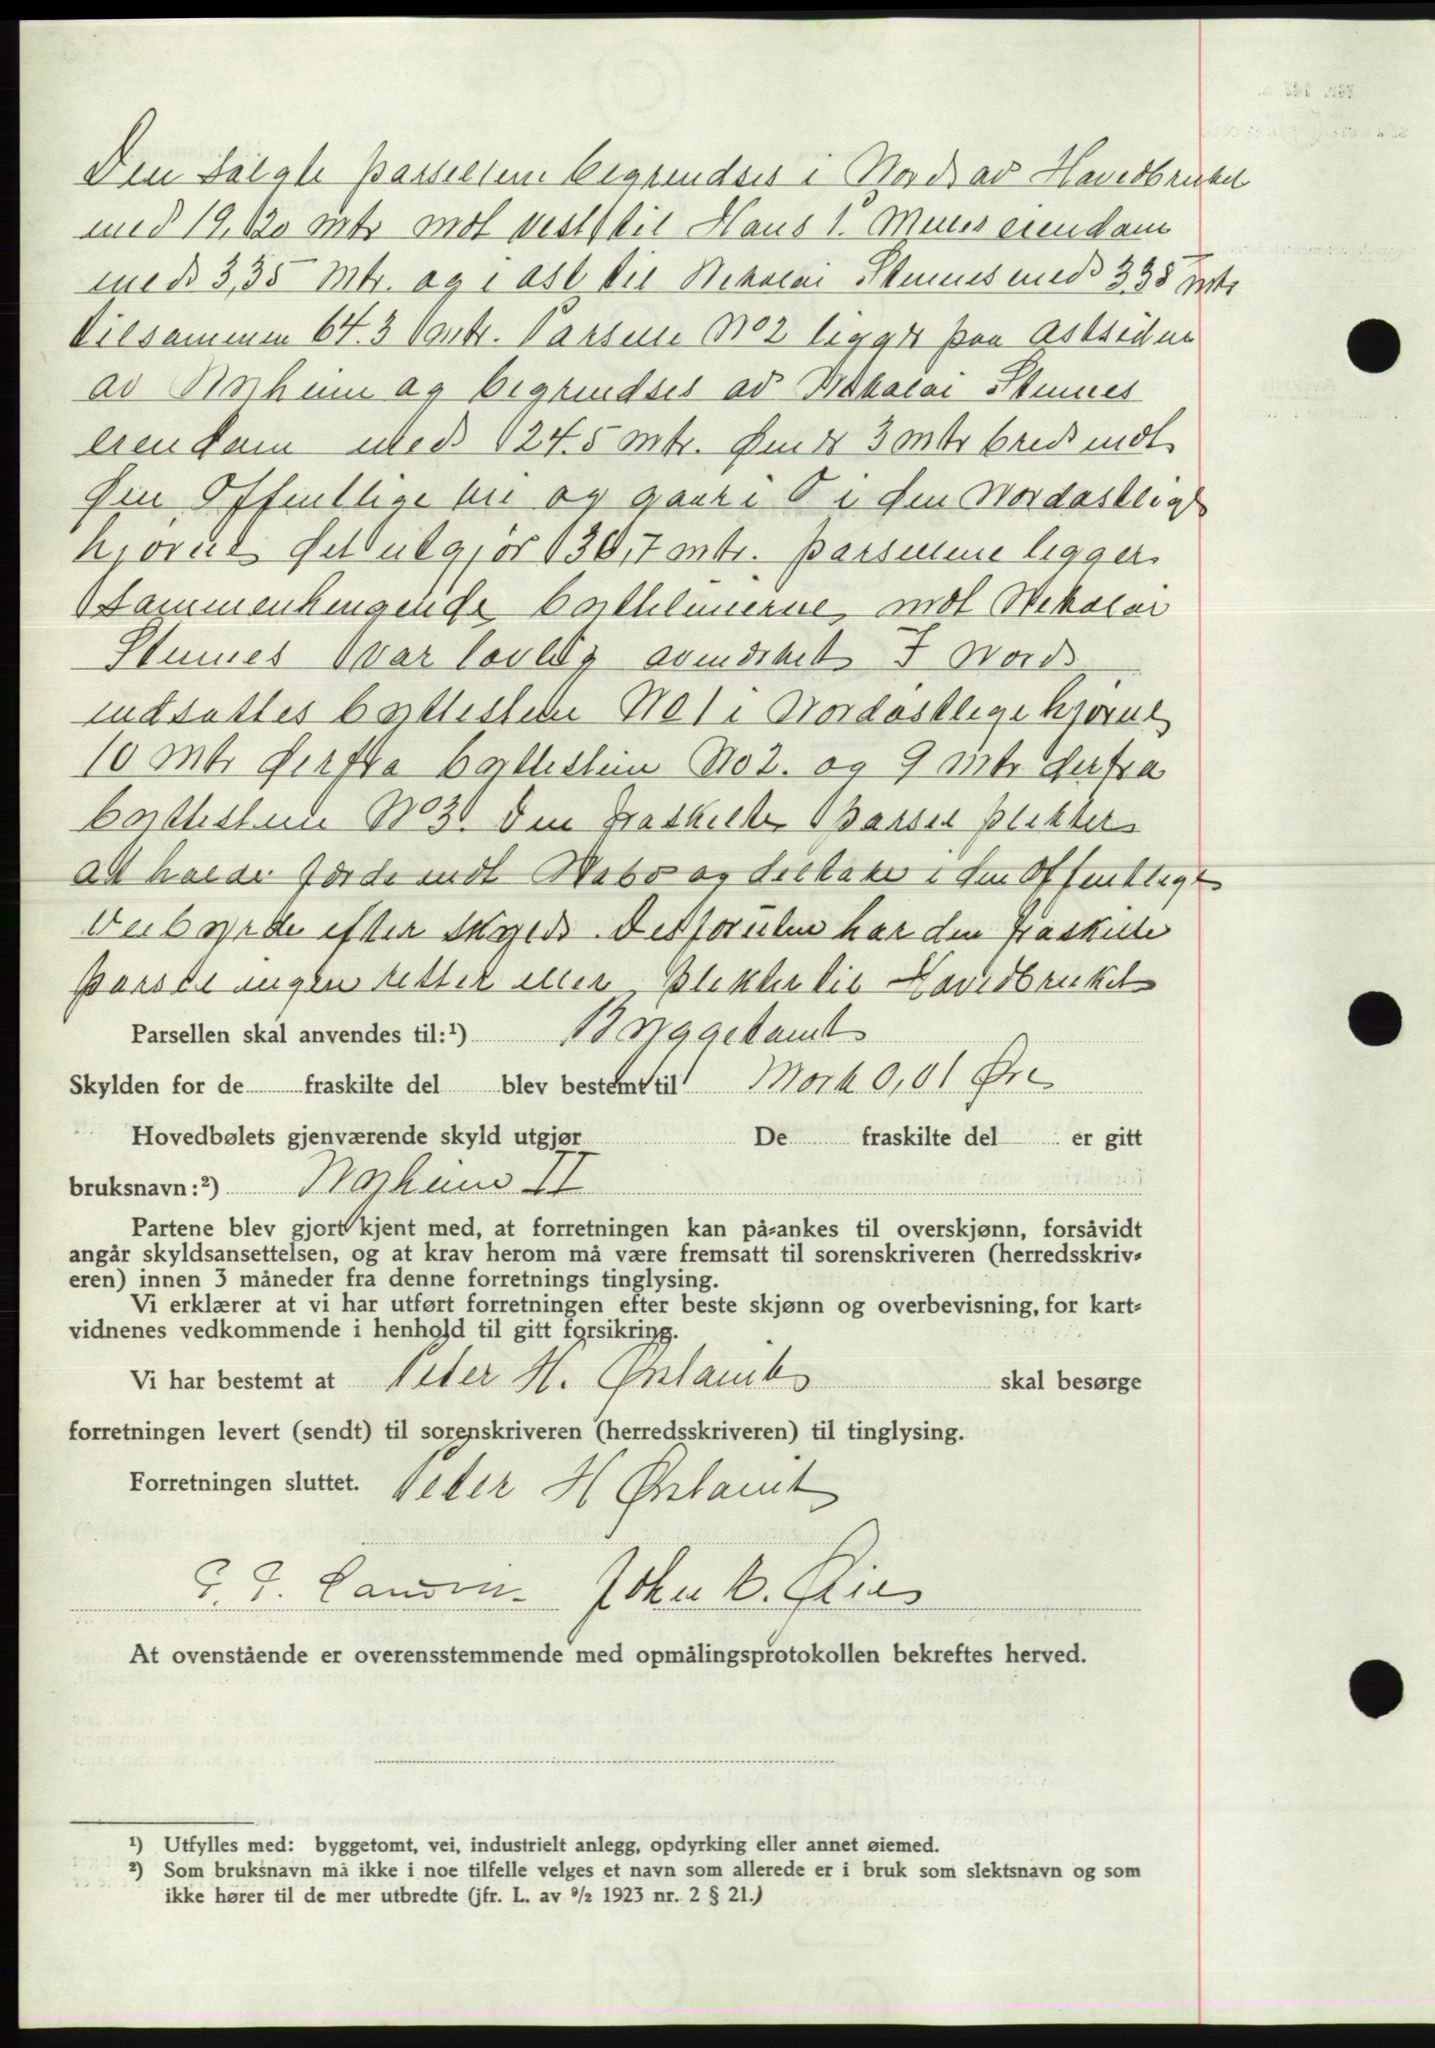 Den solgte parsellene begrendses i Nord av Hovedbruket
med 19,20 mtr mot vest til Hans P. eiendom
med 3,35 mtr. og i ost til Nikolai Stennes med 3.38 mtr
tilsammen 64.3 mtr. Parselle No 2 ligger paa ostsiden
av Nyheim og begrendses av Nikolai Stennes
eiendom med 24.5 mtr. den er 3 mtr bred mot
den Offentlige vei og gaar i O i den Nordostlige
hjørne det utgjør 36,7 mtr. parsellene ligger
sammenhengende byttelinierne mot Nikolai
Stennes var lovlig avmerket I Nord
indsattes byttestein No 1 i Nordøstlige hjørne
10 mtr derfra byttestein No 2. og 9 mtr derfra
byttestein No 3. Den fraskilte parsel plikter
at holde færde mot Nabo og deltake i den Offentlige
veibyrde efter skyld. Desforuten har den fraskilte
parsel ingen retter eller plikter til Hovedbruket
Parsellen skal anvendes til:¹) Byggetomt
Skylden for de fraskilte del blev bestemt til Mark 0,01 Øre
Hovedbølets gjenværende skyld utgjør De fraskilte del er gitt
bruksnavn:²) Nyheim II
Partene blev gjort kjent med, at forretningen kan på-ankes til overskjønn, forsåvidt
angår skyldsansettelsen, og at krav herom må være fremsatt til sorenskriveren (herredsskriv-
eren) innen 3 måneder fra denne forretnings tinglysing.
Vi erklærer at vi har utført forretningen efter beste skjønn og overbevisning, for kart-
vidnenes vedkommende i henhold til gitt forsikring.
Vi har bestemt at Peter H. Ørslamt skal besørge
forretningen levert (sendt) til sorenskriveren (herredsskriveren) til tinglysing.
Forretningen sluttet. Peter H Ørslamt
John
At ovenstående er overensstemmende med opmålingsprotokollen bekreftes herved.
¹) Utfylles med: byggetomt, vei, industrielt anlegg, opdyrking eller annet øiemed.
²) Som bruksnavn må ikke i noe tilfelle velges et navn som allerede er i bruk som slektsnavn og som
ikke hører til de mer utbredte (jfr. L. av ⁹/₂ 1923 nr. 2 § 21.)